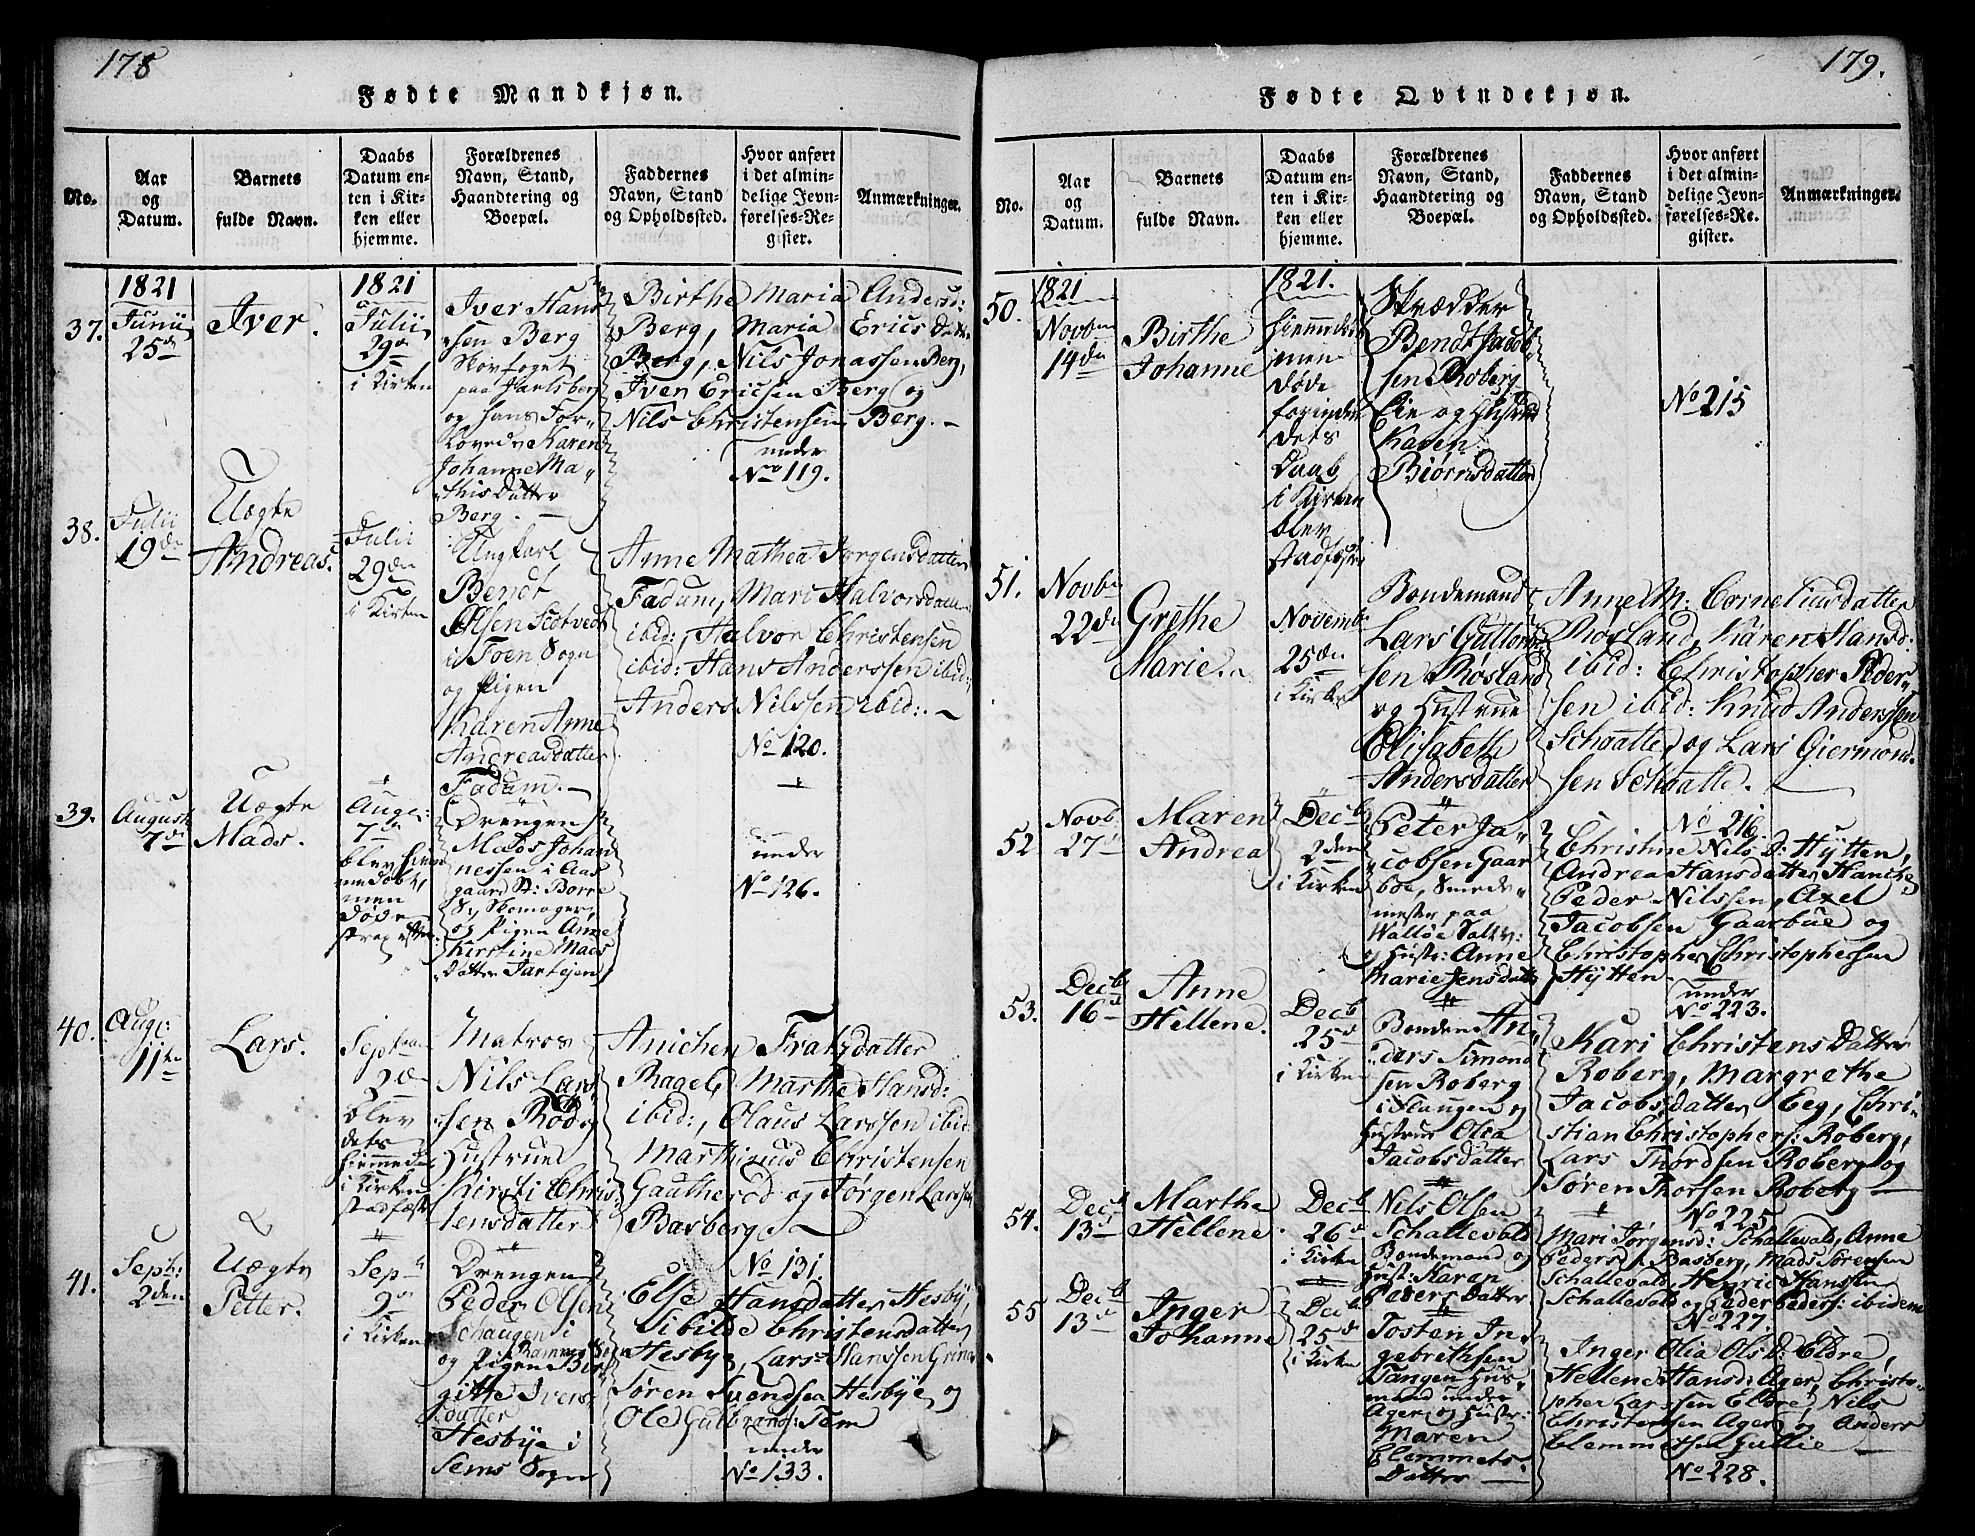 178
Fødte Mandkjøn.
No.
Aar
og
Datum.
Barnets
fulde Navn.
Daabs
Datum en-
ten i Kir-
ken eller
hjemme.
Forældrenes
Navn, Stand,
Haandtering og
Boepæl.
Faddernes
Navn, Stand
og Opholdssted.
Hvor anført
i det almin-
delige Jevn-
førelses-Re-
gister.
Anmærkninger.
37.
1821
Junii
25de
Iver.
1821
Julii
29de
i Kirken
Iver Hans
sen Berg
Skovfoget
paa Jarlsberg
og hans For-
lovede Karen
Johanne Ma-
this Datter
Berg. —
Birthe Maria Andersd:
Berg, Maria Erics Datter
Berg, Nils Jonassen Berg,
Iver Ericsen Berg og
Nils Christensen Berg. —
under
No 119.
38.
Julii
19de
Uægte
Andreas.
Julii
29den
i Kirken
Ungkarl
Bendt
Olsen Scotvedt
i Foen Sogn
og Pigen
Karen Anne
Andreasdatter
Fadum. —
Anne Mathea Jørgensdatter
Fadum, Mari Halvorsdatter
ibid:, Halvor Christensen
ibid: Hans Anderssen ibid:,
Anders Nilssen ibid:. —
No 120.
39.
Augusti
7de
Uægte
Mads.
Aug:
7de
blev hiem
me døbt,
men
døde
strax efter.
Drengen
Mads Johan
nessen i Aas
gaard St: Borre
S, Skomager,
og Pigen Anne
Kirstine Mads
Datter
under
No 126.
40.
Aug:
11te
Lars.
Sept
2de
blev
dets
hiemmedaab
i Kirken
stadfæstet
Matros
Nils Lars
sen Rød og
Hustrue
Kirsti Chris
tensdatter
Anichen Frahsdatter
Bagels Marthe Hansd:
ibid:, Olaus Larssen ibid:
Marthinus Christensen
Gautherød og Jørgen Larssen
Basberg. —
No 131.
41.
Sept:
2den
Uægte
Petter.
Sep
9de
i Kirken
Drengen
Peder Olsen
Schaugen i
Ramnes Sogn
og Pigen Bir
gitte Ivers
datter
Hesbye i
Sems Sogn
Else Hansdatter Hesby,
Sibilde Christensdatter
Hesby, Lars Hanssen
Søren Svendsen Hesbye og
Ole Gulbrands: Sem
under
No 133.
179.
Fødte Qvindekjøn.
No.
Aar
og
Datum.
Barnets
fulde Navn.
Daabs
Datum en-
ten i Kir-
ken eller
hjemme.
Forældrenes
Navn, Stand,
Haandtering og
Boepæl.
Faddernes
Navn, Stand
og Opholdssted.
Hvor anført
i det almin-
delige Jevn-
førelses-Re-
gister.
Anmærkninger.
50.
1821
Novbr
14de
Birthe
Johanne
1821.
hiemmedøbt
men
døde
forinden
dets
Daab
i Kirken
blev
stadfæstet
Skrædder
Bendt Jacob
sen Roberg
Eie og Hustrue
Karen
Biørnsdatter
No 215
51.
Novbr
22de
Grethe
Marie.
Novemb
25den
i Kirken
Bondemand
Lars Guttorm
sen Røsland
og Hustrue
Elisabeth
Andersdatter
Anne M. Corneliusdatter
Røsland, Karen Hansd:
ibid: Christopher Peder
sen ibid: Knud Anderssen
Schaatte og Lars Giermond
sen Schaatte.
No 216.
52
Novb.
27de
Maren
Andrea
Decb
2den
i Kirken
Peter Ja
cobsen Gaar
boe, Smede
mester paa
Walløe Saltv:
og Hustr: Anne
Marie Jensdatter
Christine Nils D: Hytten,
Andrea Hansdatter
Peder Nilssen, Axel
Jacobsen Gaarbue og
Christopher Christophersen
Hytten
under
No 223.
53.
Decb
16de
Anne
Hellene.
Decb
25de
i Kirken
Bonden An
ders Simond
sen Roberg
i Slaugen og
Hustrue Olia
Jacobsdatter
Kari Christens Datter
Roberg, Margrethe
Jacobsdatter Eeg, Chri
stian Christophers: Roberg,
Lars Thordsen Roberg og
Søren Thorsen Roberg
No 225.
54.
Decb
13de
Marthe
Hellene.
Decb
26de
i Kirken
Nils Olsen
Schallevald
Bondemand og
Hust: Karen
Peders Datter
Mari Jørgensd: Schallevald, Anne
Pedersd: Basberg, Mads Sørensen
Schallevald, Henric Hanssen
Schallevald og Peder Peders: ibidem
No 227.
55
Decb
13de
Inger
Johanne
Decb
25de
i Kirken
Tosten In
gebrethsen
Tangen Huus
mand under
Ager og Hustr:
Maren
Clemmets
Datter
Inger Olia Ols D: Eldre,
Hellene Hansd: Ager, Christo
pher Larssen Eldre, Nils
Christensen Ager og Anders
Clemmetsen Gullie
No 228.